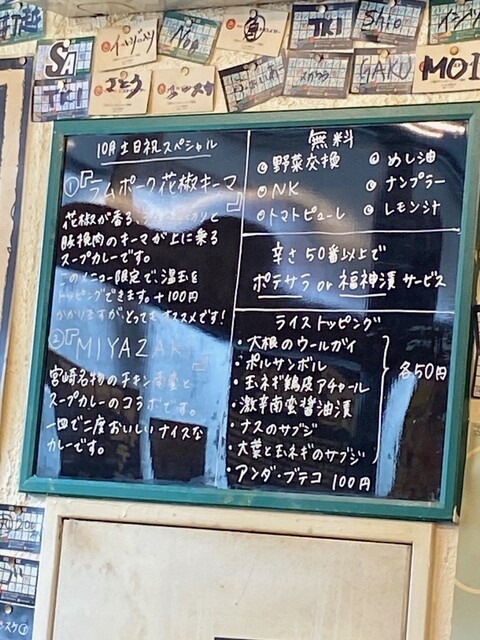 SA
イーペソペソ
Nag
TKI
SATO
さとう
メガネウラ
GAKU
MOI
10月土日祝スペシャル
①『ラムポーク花椒キーマ』
花椒が香る、
豚挽肉のキーマが上に乗る
スープカレーです。
このメニュー限定で、温玉を
トッピングできます。+100円
かかりますが、とってもオススメです!
②『MIYAZAKI』
宮崎名物のチキン南蛮と
スープカレーのコラボです。
一皿で二度おいしいナイスな
カレーです。
無料
野菜交換
NK
トマトピューレ
めし油
ナンプラー
レモン汁
辛さ50番以上で
ポテサラ or 福神漬 サービス
ライストッピング
・大根のウールガイ
・ポルサンボル
・玉ネギ鶏皮アチャール
・激辛南蛮醤油漬
・ナスのサブジ
・大葉と玉ネギのサブジ
各50円
・アンダ・ブテコ 100円